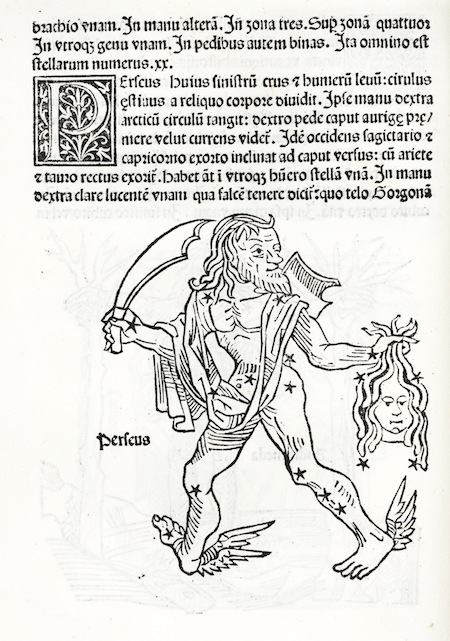 brachio vnam. In manu alterā. Iñ zona tres. Supᵉ zonā quattuor
In vtroqʒ genu vnam. In pedibus autem binas. Ita omnino est
stellarum numerus. xx.
PErseus Huius sinistrū crus & humerū leuū: cirulus
ęstiuus a reliquo corpore diuidit. Ipse manu dextra
arcticū circulū tangit: dextro pede caput aurigę prę/
mere velut currens videt᷑. Idē occidens sagictario &
capricorno exorto inclinat ad caput versus: cū ariete
& tauro rectus exorit᷑. Habet āt ī vtroqʒ hūero stellā vnā. In manu
dextra clare lucentē vnam qua falcē tenere dicit᷑: quo telo Gorgonā
Perseus